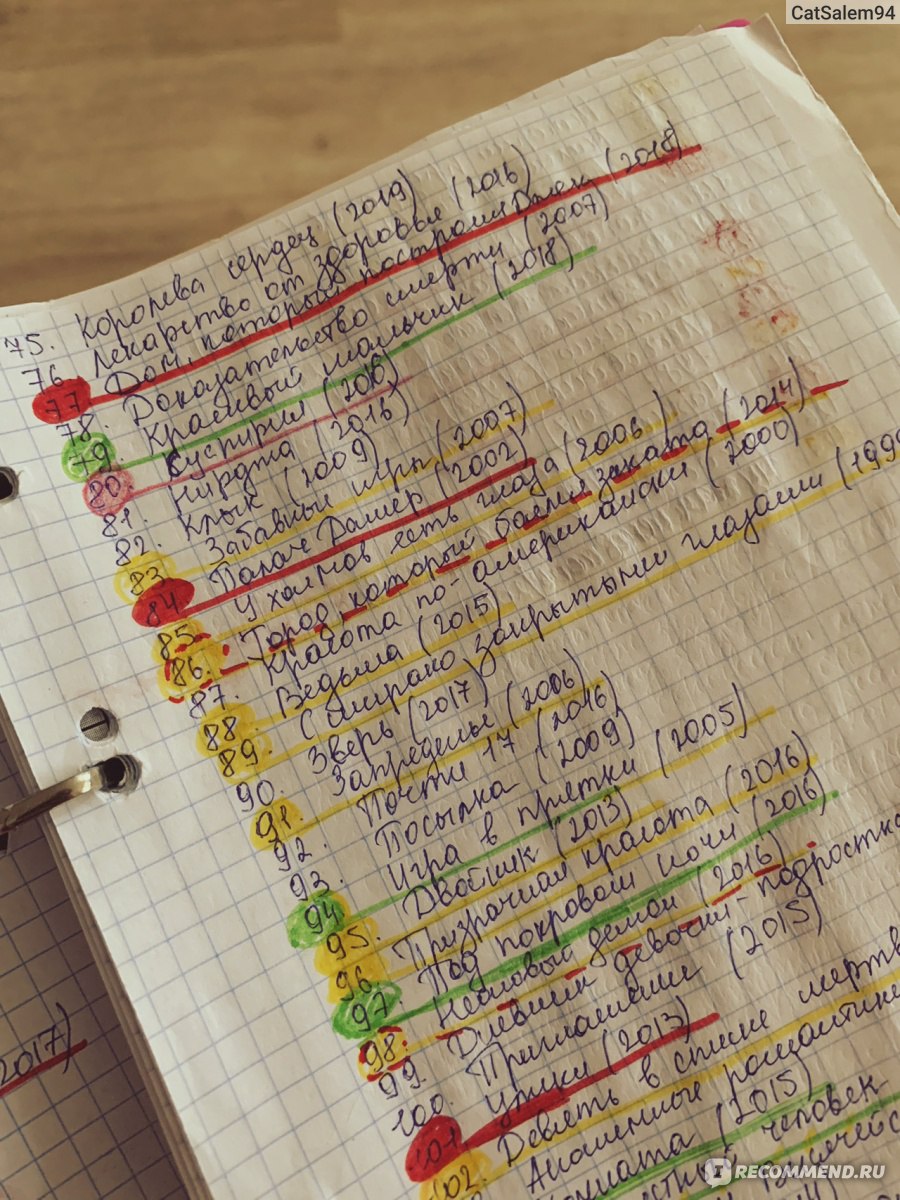 CatSalem94
75. Королева сердец (2019)
76 Лекарство от здоровья (2016)
77 Дом, который построил Джек (2018)
78. Доказательство смерти (2007)
79 Красивый мальчик (2018)
80. Кустирия (2016)
81. Нинджа (2016)
82. Клык (2009)
83 Забавные игры (2007)
84 Палач Дамер (2002)
85. У холмов есть глаза (2006)
86. Город, который боялся заката (2014)
87. Красота по-американски (2000)
88 Ведьма (2015)
89. С широко закрытыми глазами (1999
90. Зверь (2017)
91. Запределье (2006)
92. Почти 17 (2016)
93 Посылка (2009)
94 Игра в прятки (2005)
95. Двойник (2013)
96 Призрачная красота (2016)
97 Под покровом ночи (2016)
98 Неоновый демон (2016)
99 Дневник девочки-подростка
100. Приглашение (2015)
101 Узники (2013)
102. Девять в списке мертв
Анонимные романтики
Комната (2015)
человек
2017)
RECOMMEND.RU